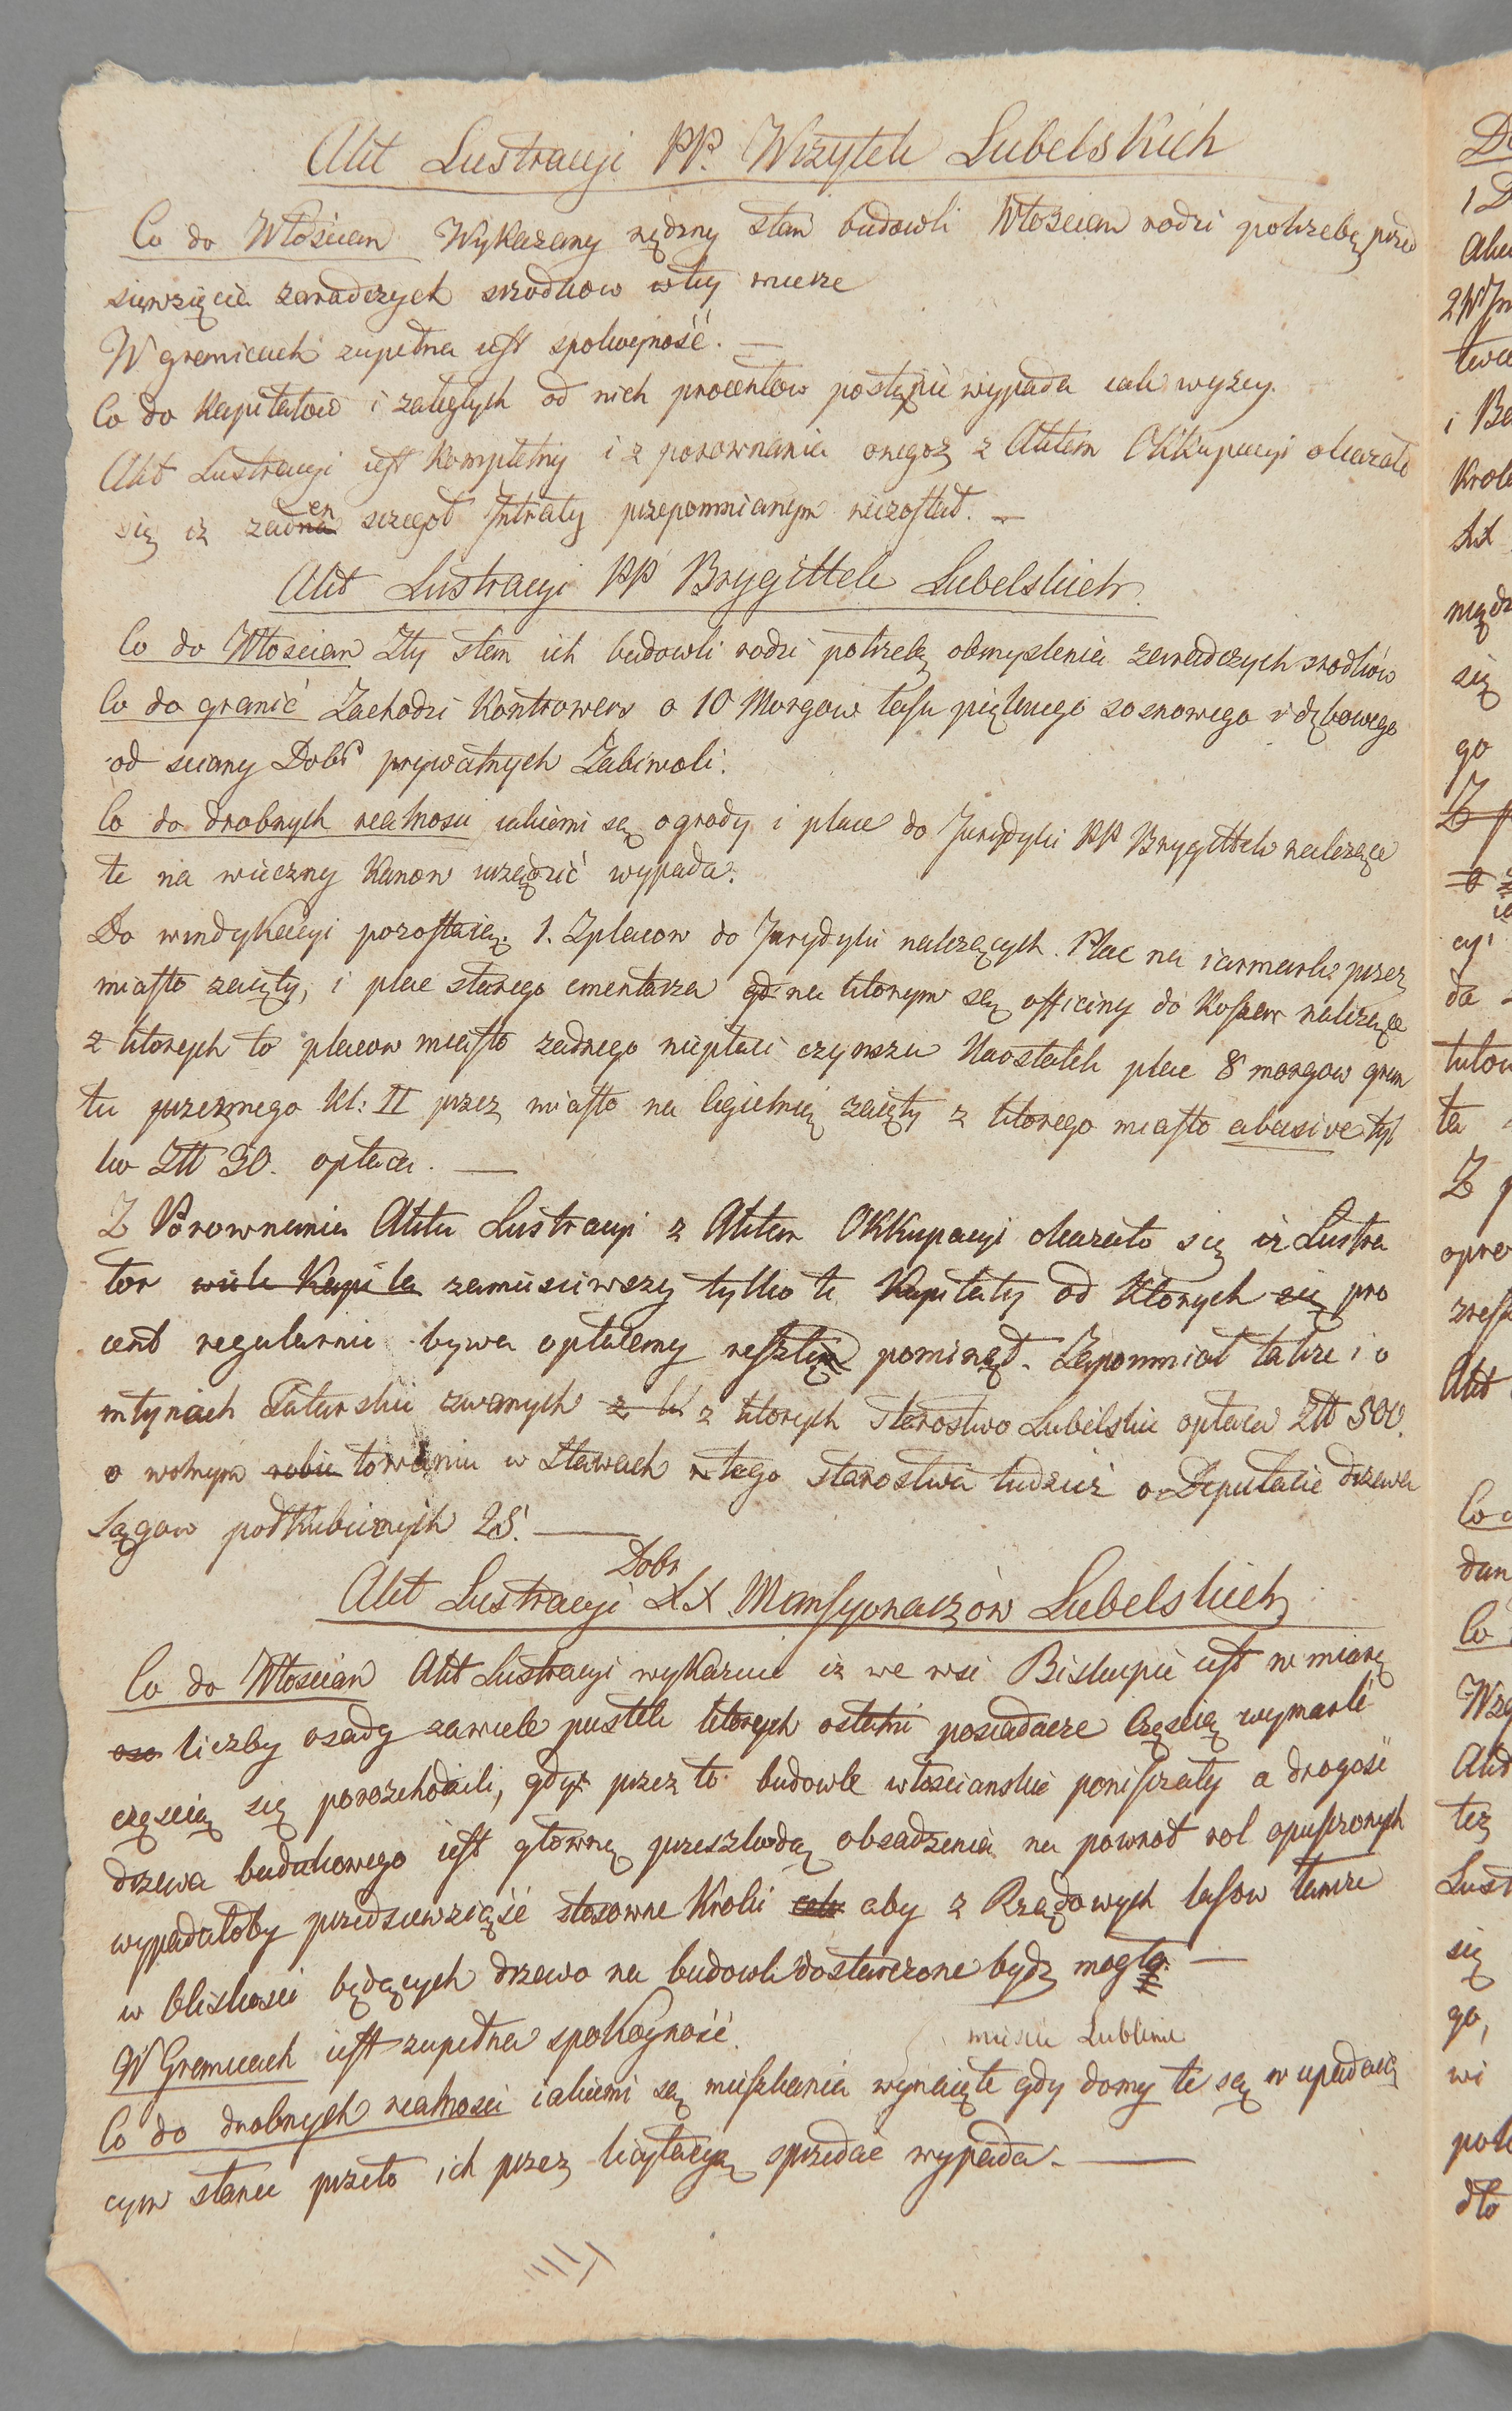 Akt Lustracyi PP. Wizytek Lubelskich
Co do Włoscian Wykazany nędzny stan budowli Włoscian rodzi potrzebę przed
sięwzięcia zaradczych srzodkow wtey mierze
W granicach zupełna iest spokoyność. —
Co do Kapitałow i zaległych od nich procentow postąpić wypada iak wyzey.
Akt Lustracyi iest kompletny i z porownania onegoz z Aktem Okkupacyi okazało
się iz zadnaen szczegoł Intraty przepomnianym niezostał. —
Akt Lustracyi PP Brygittek Lubelskich.
Co do Włoscian Zły stan ich budowli rodzi potrzebę obmyslenia zaradczych srodków
Co do granić Zachodzi Kontrowers o 10 Morgow lasu pięknego sosnowego i dębowego
od sciany Dobr prywatnych Zabiwoli.
Co do drobnych realnosci iakiemi są ogrody i place do Jurydyki PP Brygittek nalezące
te na wieczny Kanon urządzić wypada.
Do windykacyi pozostaią. 1. Zplacow do Jurydyki nalezących. Plac na iarmarki przez
miasto zaięty, i plac starego cmentarza gd na ktorym są officiny do Koszar nalezące
z ktorych to placow miasto zadnego niepłaci czynszu Naostatek plac 8 morgow grun
tu pszennego Kl: II przez miasto na cegielnią zaięty z ktorego miasto abusive tyl
ko Złł 30. opłaca. —
Z Porownania Aktu Lustracyi z Aktem Okkupacyi okazało się iz Lustra
tor wiele Kapi ta zamiesciwszy tylko te Kapitały od Ktorych się pro
cent regularnie bywa opłacany resztę pominął. Zapomniał takze i o
młynach Tatarskie zwanych z kt z ktorych Starostwo Lubelskie opłaca Złł 500.
o wolnym robie łowieniu w Stawach tego Starostwa tudzież o Deputacie drzewa
Sągow podkubicznych 25. —
Akt Lustracyi Dobr XX Mansyonarzów Lubelskich
Co do Włoscian Akt Lustracyi wykazuie iz we wsi Biskupie iest w miarę
oso liczby osady zawiele pustek ktorych ostatni posiadacze częscią wymarli
częscią się porozchodzili, gdyz przez to budowle włoscianskie poniszczały a drogość
drzewa budulcowego iest głowną przeszkodą obsadzenia na powrot rol opuszczonych
wypadałoby przedsiewziąść stosowne Kroki celo aby z Rządowych lasow tamze
w bliskosci będących drzewo na budowli dostarczone bydz mogło. —
W Granicach iest zupełna spokoyność.
miescie Lublinie
Co do drobnych realnosci iakiemi są mieszkania wynaięte gdy domy te są w upadaią
cym stanie przeto ich przez licytacyą sprzedać wypada. —